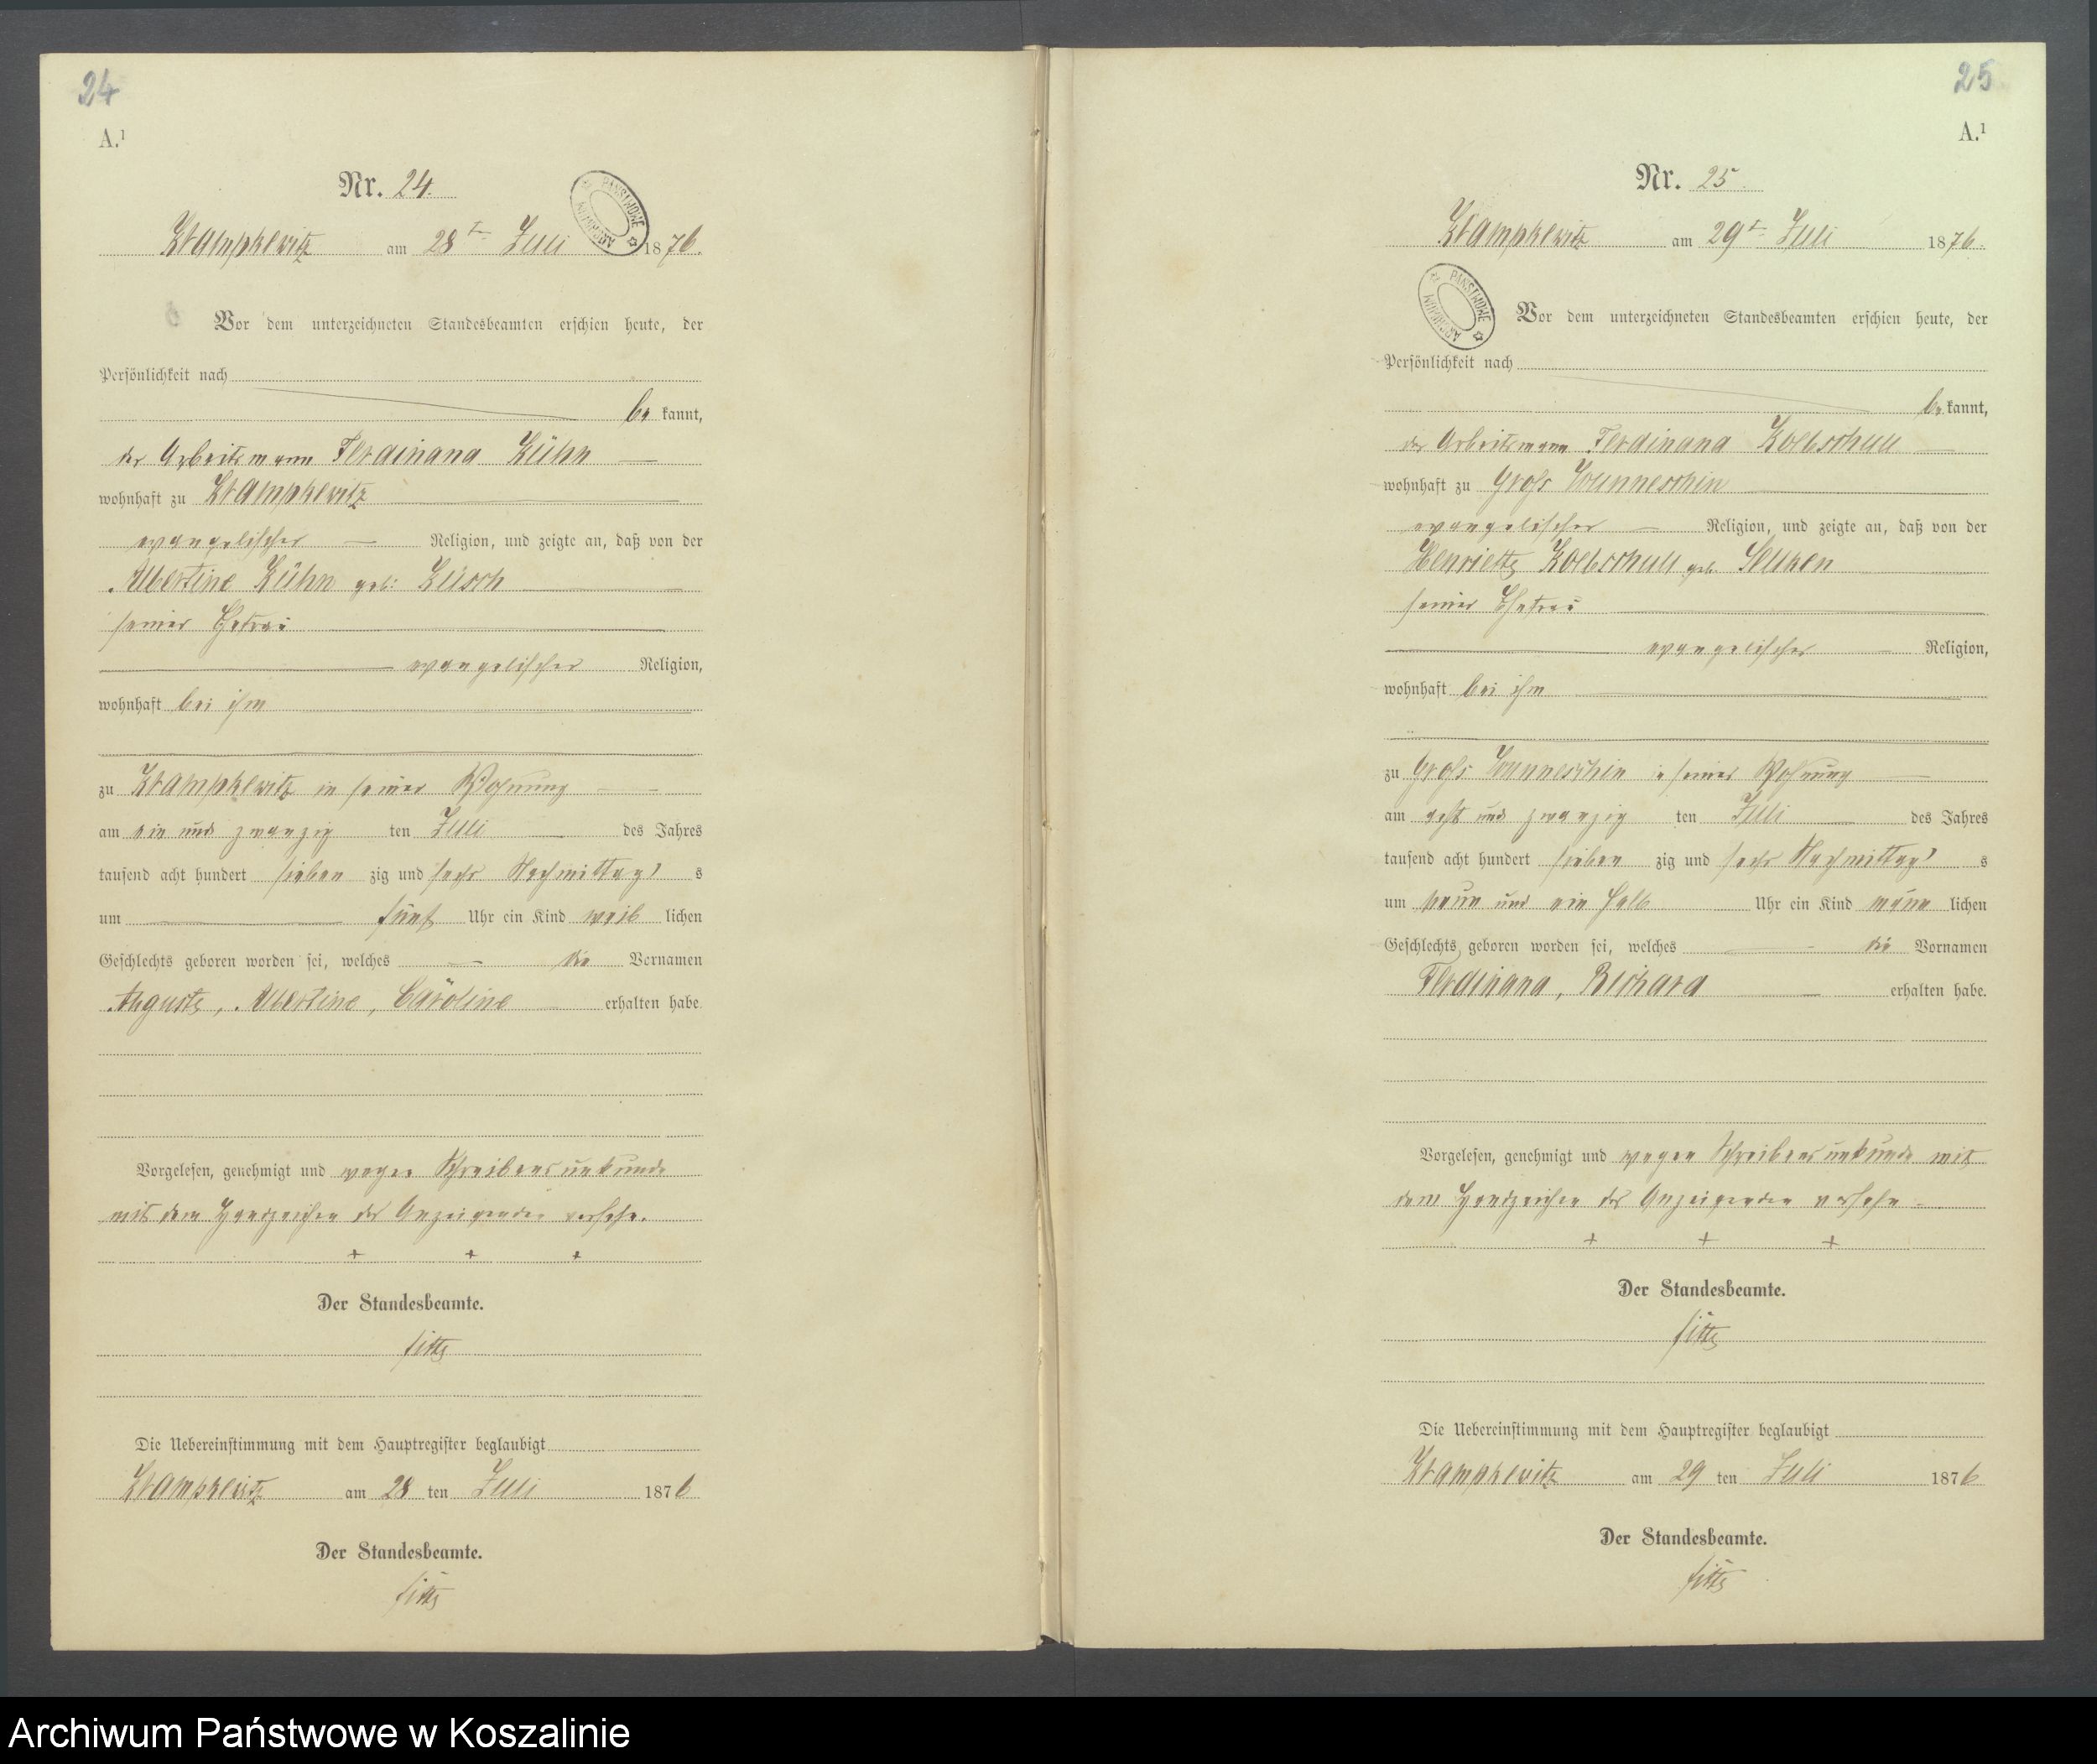 24
A.¹
Nr. 24.
Krampkewitz am 28t Juli 1876.
Vor dem unterzeichneten Standesbeamten erschien heute, der
Persönlichkeit nach
be kannt,
der Arbeitsmann Ferdinand Kühn
wohnhaft zu Krampkewitz
evangelischer Religion, und zeigte an, daß von der
Albertine Kühn geb:
seiner Ehefrau
evangelischer Religion,
wohnhaft bei ihm
zu Krampkewitz in seiner Wohnung
am ein und zwanzig ten Juli des Jahres
tausend acht hundert sieben zig und sechs Nachmittag s
um fünf Uhr ein Kind weib lichen
Geschlechts geboren worden sei, welches die Vornamen
Auguste, Albertine, Caroline erhalten habe.
Vorgelesen, genehmigt und wegen Schreibensunkunde
mit dem Handzeichen des Anzeigenden versehn.
+ + +
Der Standesbeamte.
Die Uebereinstimmung mit dem Hauptregister beglaubigt
Krampkewitz am 28 ten Juli 1876
Der Standesbeamte.
25
A.¹
Nr. 25.
Krampkewitz am 29t Juli 1876.
PAŃSTWOWE ARCHIWUM
Vor dem unterzeichneten Standesbeamten erschien heute, der
Persönlichkeit nach
be kannt,
der Arbeitsmann Ferdinand
wohnhaft zu Groß Wunneschin
evangelischer Religion, und zeigte an, daß von der
Henriette geb.
seiner Ehefrau
evangelischer Religion,
wohnhaft bei ihm
zu Groß Wunneschin in seiner Wohnung
am acht und zwanzig ten Juli des Jahres
tausend acht hundert sieben zig und sechs Nachmittag s
um neun und ein halb Uhr ein Kind männ lichen
Geschlechts geboren worden sei, welches die Vornamen
Ferdinand, Richard erhalten habe.
Vorgelesen, genehmigt und wegen Schreibensunkunde mit
dem Handzeichen des Anzeigenden versehn
+ + +
Der Standesbeamte.
Die Uebereinstimmung mit dem Hauptregister beglaubigt
Krampkewitz am 29 ten Juli 1876
Der Standesbeamte.
Archiwum Państwowe w Koszalinie